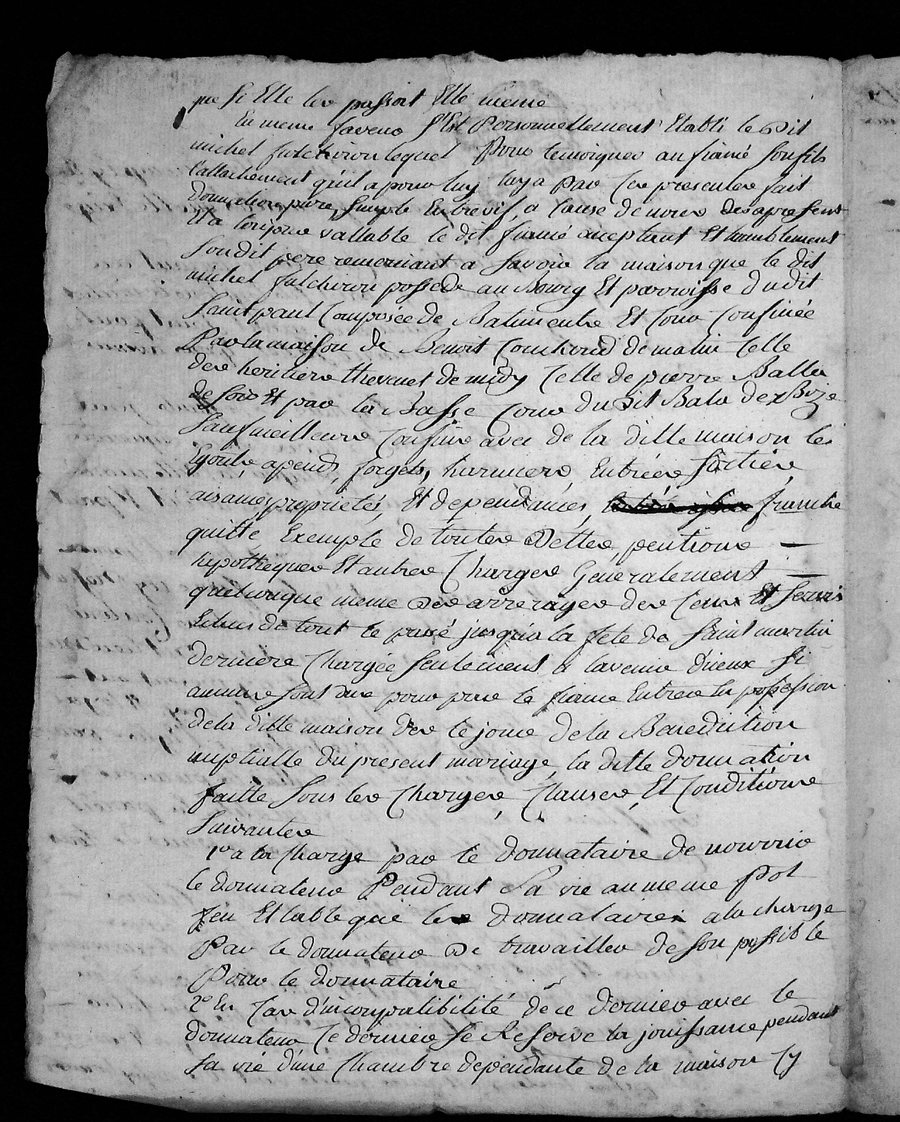 que si Elle les passoit Elle même
En meme faveur s'Est Personnellement Etabli le Dit
michel fulchiron lequel Pour temoigner au fiancé son fils
l'attachement qu'il a pour luy luy a Par Ces presentes fait
donnation pure, simple Entrevifs, a Cause de noces des a present
Et a toujours vallable le dit fiancé acceptant Et humblement
Son dit pere remerciant a Savoir la maison que le dit
michel fulchiron possede au Bourg Et parroisse Du dit
Saint paul Composée de Batiments Et Cour Confinée
Par la maison de Benoit de matin Celle
des heritiers thevenet de midy Celle de pierre Balla
de soir Et par la Basse Cour du Dit Bala de Bize
Sauf meilleurs Confins avec de la ditte maison les
Egouts apends, forgets, Entrées Sorties
aisances proprietés, Et dependances, franche
quitte Exempte de touttes Dettes, pentions
hypotheques Et autres Charges Generalement
quelconque meme Des arrerages des Cens Et Servis
Echus de tout le passé jusqu'a la fete de Saint martin
derniere Chargée Seulement a l'avenir d'iceux Si
aucuns sont dus pour par le fiancé Entrer En possession
de la ditte maison Des le jour de la Benediction
nuptialle du present mariage, la ditte donnation
faitte Sous les Charges, Clauses, Et Conditions
Suivantes
1° a la Charge par le donnataire de nourrir
le donnateur Pendant Sa vie au meme pot
feu Et table que les donnataires a la charge
Par le donnateur De travailler de Son possible
Pour le donnataire
2° En Cas d'incompatibilité de ce dernier avec le
donnateur Ce dernier Se Reserve la jouissance pendant
Sa vie d'une Chambre dependante de la maison Cy